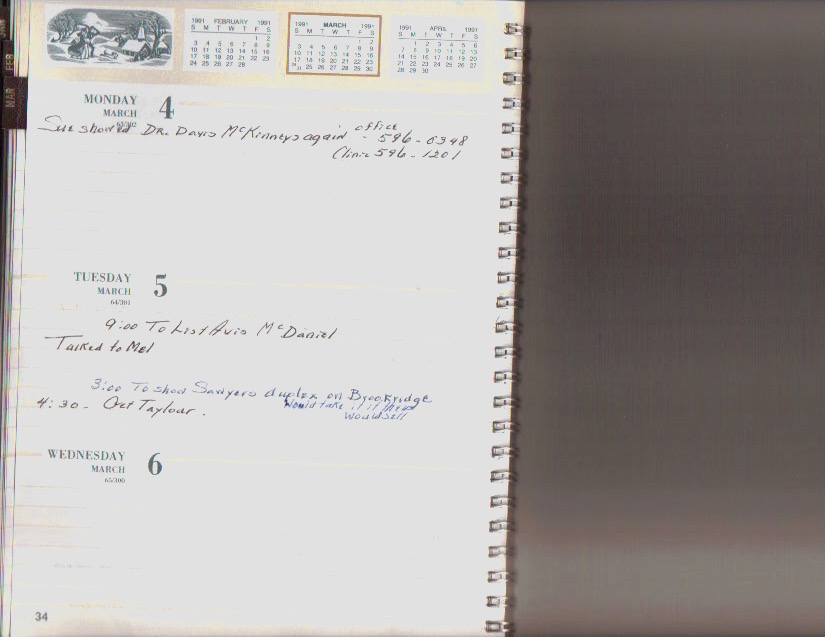 FEB
MAR
1991 FEBRUARY 1991
S M T W T F S
1 2
3 4 5 6 7 8 9
10 11 12 13 14 15 16
17 18 19 20 21 22 23
24 25 26 27 28
1991 MARCH 1991
S M T W T F S
1 2
3 4 5 6 7 8 9
10 11 12 13 14 15 16
17 18 19 20 21 22 23
24/31 25 26 27 28 29 30
1991 APRIL 1991
S M T W T F S
1 2 3 4 5 6
7 8 9 10 11 12 13
14 15 16 17 18 19 20
21 22 23 24 25 26 27
28 29 30
MONDAY 4
MARCH
63/302
Sue showed DR. Davis McKinneys again office 596-0348
Clinic 596-1201
TUESDAY 5
MARCH
64/301
9:00 To List Avis McDaniel
Talked to Mel
3:00 To show Sawyers duplex on Brookridge
Would take it if
Would sell
4:30- Get Taylour.
WEDNESDAY 6
MARCH
65/300
34